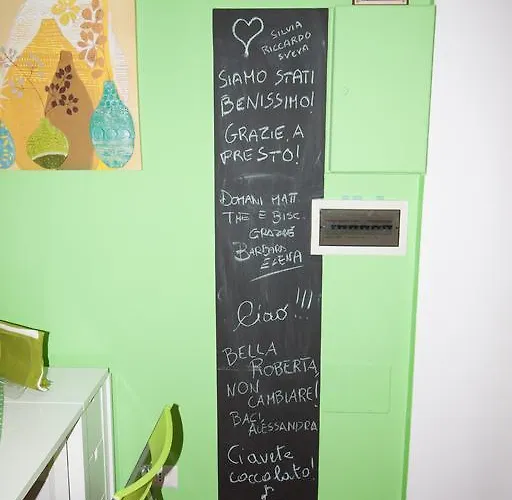 SILVIA
RICCARDO
SVEVA
SIAMO STATI
BENISSIMO!
GRAZIE, A
PRESTO!
DOMANI MATT.
THE E BISC.
GRAZIE
BARBARA
ELENA
Ciao!!!
BELLA
ROBERTA,
NON
CAMBIARE!
BACI,
ALESSANDRA
Ci avete
coccolato!